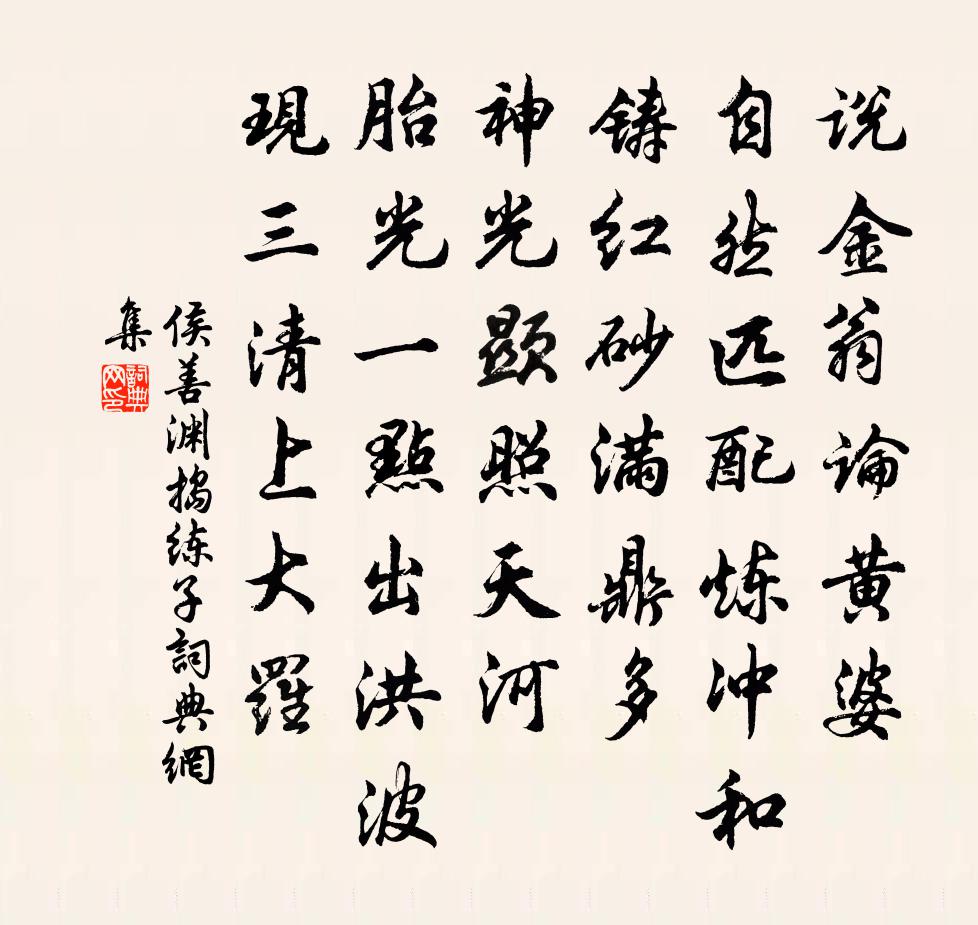 说金翁論黄婆
自然匹配炼冲和
鑄红砂满鼎多
神光顕照天河
胎光一點出洪波
現三清上大羅
侯善渊捣练子詞典網
集
詞典
网印